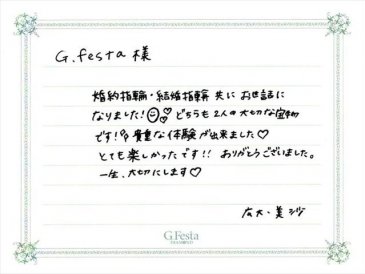 G.festa 様
婚約指輪・結婚指輪 共に お世話に
なりました！どちらも 2人の大切な宝物
です！！貴重な体験が出来ました♡
とても楽しかったです！！ ありがとうございました。
一生、大切にします♡
広大・美沙
G.Festa
DIAMOND